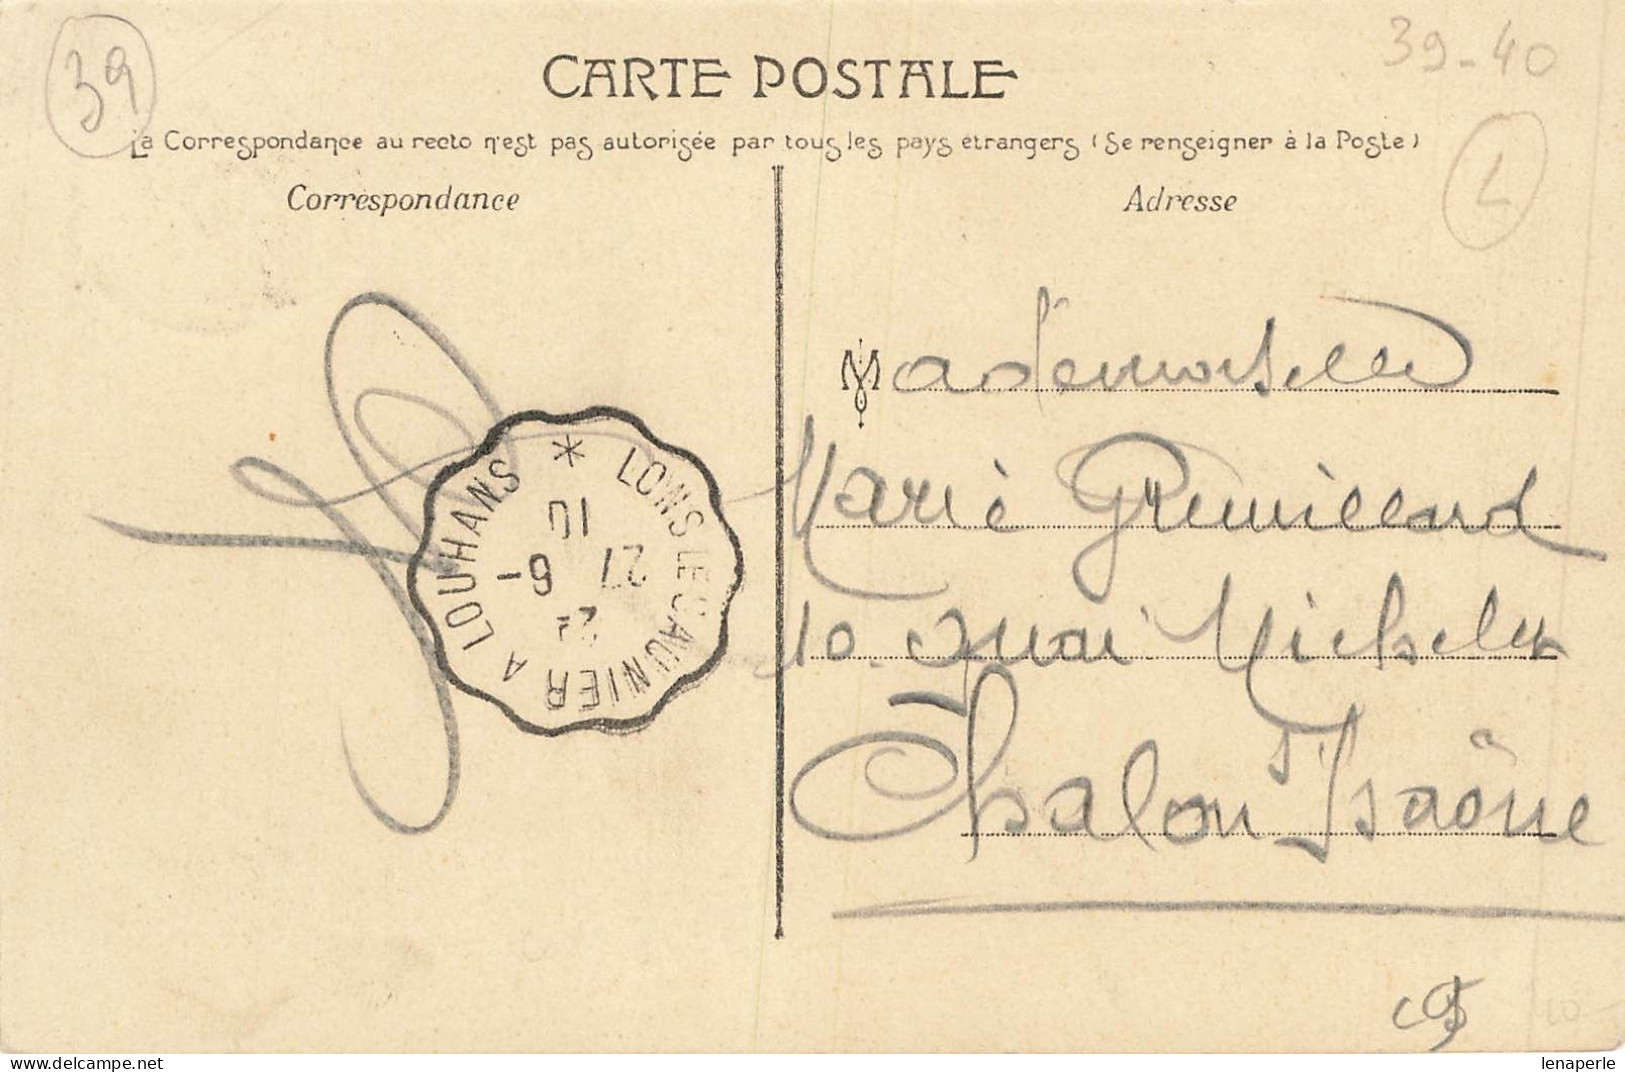 39
39-40
CARTE POSTALE
La Correspondance au recto n'est pas autorisée par tous les pays étrangers (Se renseigner à la Poste)
L
Correspondance
Adresse
LONS LE SAUNIER A LOUHANS *
27
10
Mademoiselle
Marie Gremillard
10. Quai Michelet
Chalon s/ Saône
lenaperle